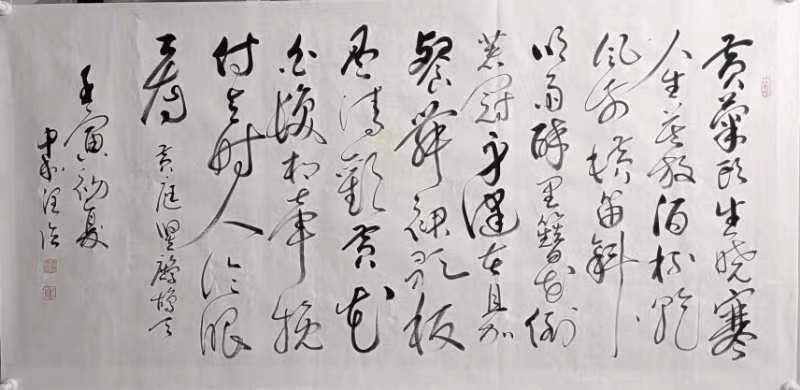 黄菊枝头生晓寒
人生莫放酒杯乾
风前横笛斜
吹雨醉里簪花倒
著冠身健在且加
餐舞裙歌板
尽清歡黄花
白髮相牵挽
付与时人冷眼
看 黄庭坚鹧鸪天
壬寅初夏